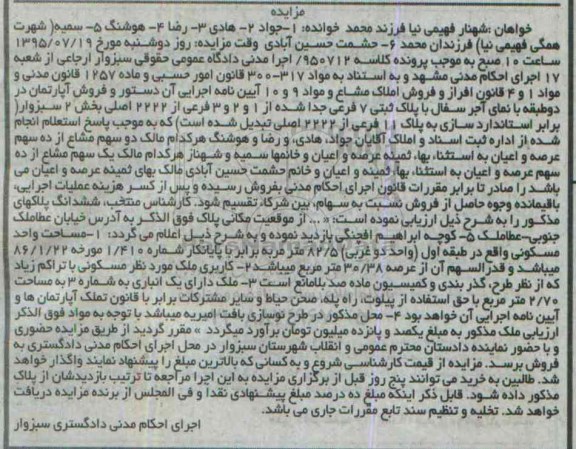 مزایده
خواهان :شهناز فهیمی نیا فرزند محمد خوانده: ۱-جواد ۲- هادی ۳- رضا ۴- هوشنگ ۵- سمیه( شهرت
همگی فهیمی نیا) فرزندان محمد ۶- حشمت حسین آبادی وقت مزایده: روز دوشنبه مورخ ۱۳۹۵/۰۷/۱۹
ساعت ۱۰ صبح به موجب پرونده کلاسه ۹۵۰۷۱۲/ اجرا مدنی دادگاه عمومی حقوقی سبزوار ارجاعی از شعبه
۱۷ اجرای احکام مدنی مشهد و به استناد به مواد ۳۱۷-۳۰۰ قانون امور حسبی و ماده ۱۲۵۷ قانون مدنی و
مواد ۱ و ۴ قانون افراز و فروش املاک مشاع و مواد ۹ و ۱۰ آیین نامه اجرایی آن دستور و فروش آپارتمان در
دوطبقه با نمای آجر سفال با پلاک ثبتی ۷ فرعی جدا شده از ۱ و ۲ و ۳ فرعی از ۲۲۲۲ اصلی بخش ۲ سبزوار(
برابر استاندارد سازی به پلاک فرعی از ۲۲۲۲ اصلی تبدیل شده است) که به موجب پاسخ استعلام انجام
شده از اداره ثبت اسناد و املاک آقایان جواد، هادی، و رضا و هوشنگ هرکدام مالک دو سهم مشاع از ده سهم
عرصه و اعیان به استثناء بهاء ثمینه عرصه و اعیان و خانمها سمیه و شهناز هرکدام مالک یک سهم مشاع از ده
سهم عرصه و اعیان به استثناء بهاء ثمینه و اعیان و خانم حشمت حسین آبادی مالک بهای ثمینه عرصه و اعیان می
باشد را صادر تا برابر مقررات قانون اجرای احکام مدنی بفروش رسیده و پس از کسر هزینه عملیات اجرایی،
باقیمانده وجوه حاصل از فروش نسبت به سهام، بین شرکا، تقسیم شود. کارشناس منتخب، ششدانگ پلاکهای
مذکور را به شرح ذیل ارزیابی نموده است: «... از موقعیت مکانی پلاک فوق الذکر به آدرس خیابان عطاملک
جنوبی-عطاملک ۵- کوچه ابراهیم افچنگی بازدید نموده و به شرح ذیل اعلام می گردد: ۱-مساحت واحد
مسکونی واقع در طبقه اول (واحدکو غربی) ۸۲/۵ متر مربه برابر با پایانکار شماره ۱/۴۱۰ مورخه ۸۶/۱/۲۲
میباشد و قدرالسهم آن از عرصه ۳۰/۳۸ متر مربع میباشد ۲- کاربری ملک مورد نظر مسکونی با تراکم زیاد
که از نظر طرح، گذر بندی و کمیسیون ماده صد بلامانع است ۳- ملک دارای یک انباری به شماره ۳ به مساحت
۲/۷۰ متر مربع با حق استفاده از پیلوت، راه پله، صحن حیاط و سایر مشترکات برابر با قانون تملک آپارتمان ها و
آیین نامه اجرایی آن خواهد بود ۴- محل مذکور در طرح نوسازی بافت امیریه میباشد با توجه به مواد فوق الذکر
ارزیابی ملک مذکور به مبلغ یکصد و پانزده میلیون تومان برآورد میگردد » مقرر گردید از طریق مزایده حضوری
و با حضور نماینده دادستان محترم عمومی و انقلاب شهرستان سبزوار در محل اجرای احکام مدنی دادگستری به
فروش برسد. مزایده از قیمت کارشناسی شروع و به کسانی که بالاترین مبلغ را پیشنهاد نمایند واگذار خواهد
شد. طالبین به خرید می توانند پنج روز قبل از برگزاری مزایده به این اجرا مراجعه تا ترتیب بازدیدشان از پلاک
مذکور داده شود. قابل ذکر اینکه مبلغ ده درصد مبلغ پیشنهادی نقدا و فی المجلس از برنده مزایده دریافت
خواهد شد. تخلیه و تنظیم سند تابع مقررات جاری می باشد.
اجرای احکام مدنی دادگستری سبزوار